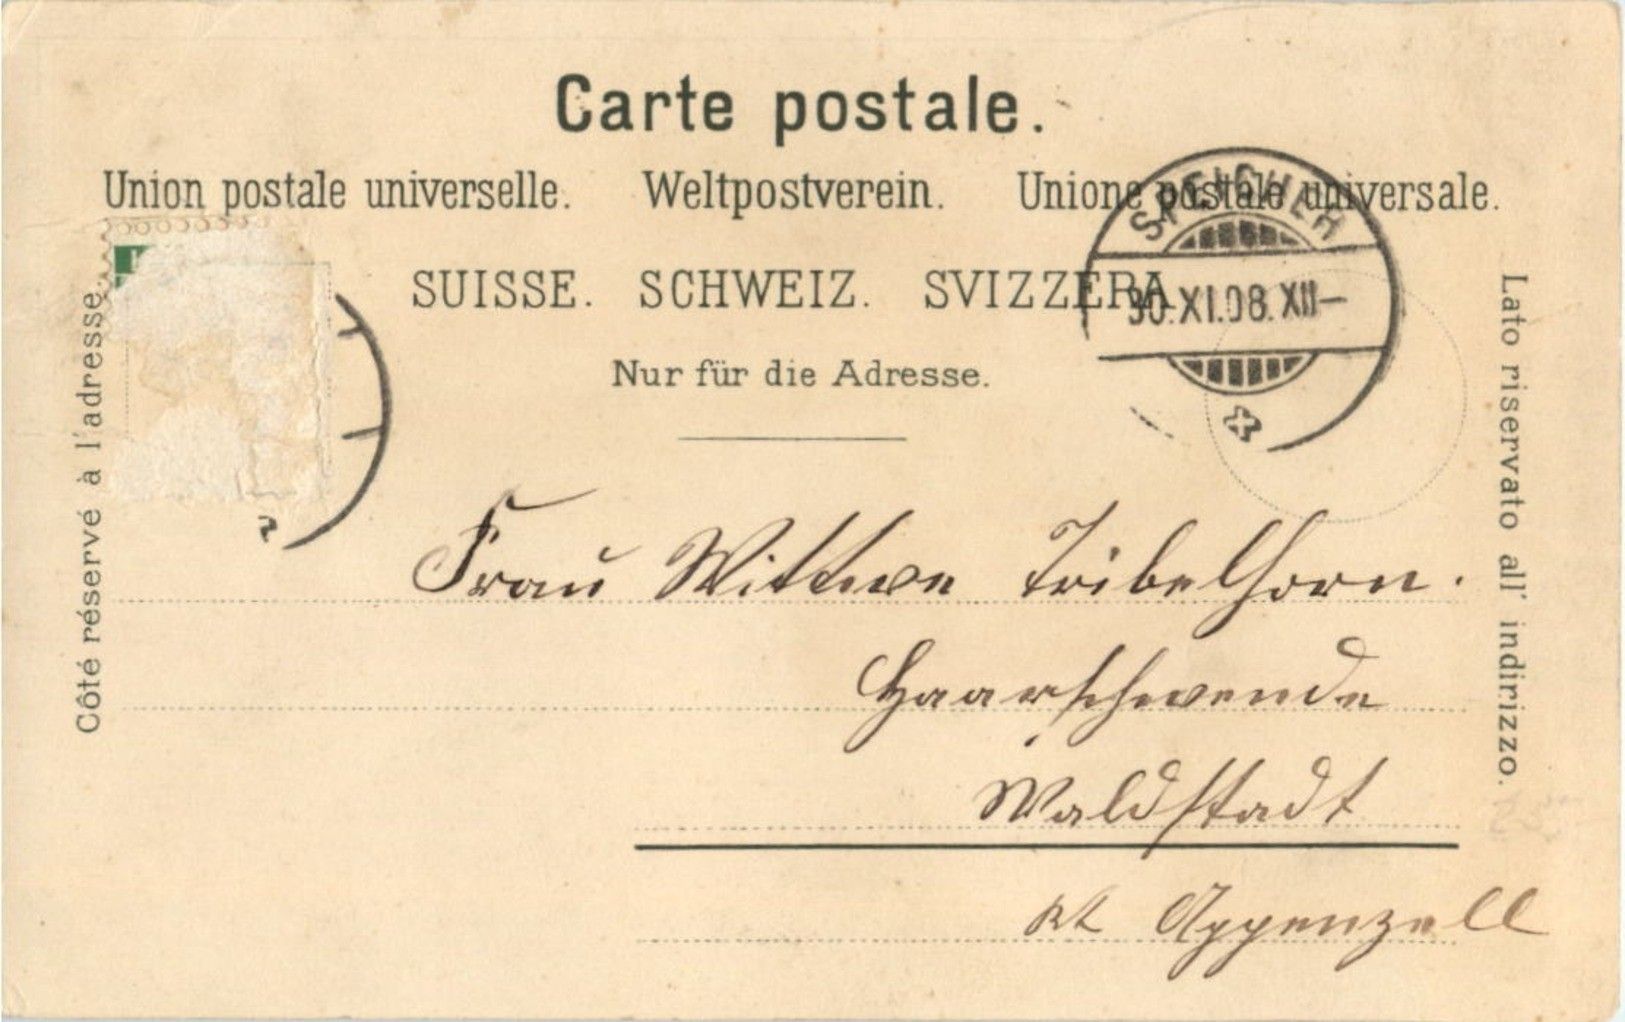 Carte postale.
Union postale universelle. Weltpostverein. Unione postale universale.
SUISSE. SCHWEIZ. SVIZZERA.
Nur für die Adresse.
Côté réservé à l'adresse.
Lato riservato all' indirizzo.
SPEICHER
30.XI.08.XII–
Frau Wittwe Tribelhorn.
Haarschwende
Waldstadt
Kt Appenzell